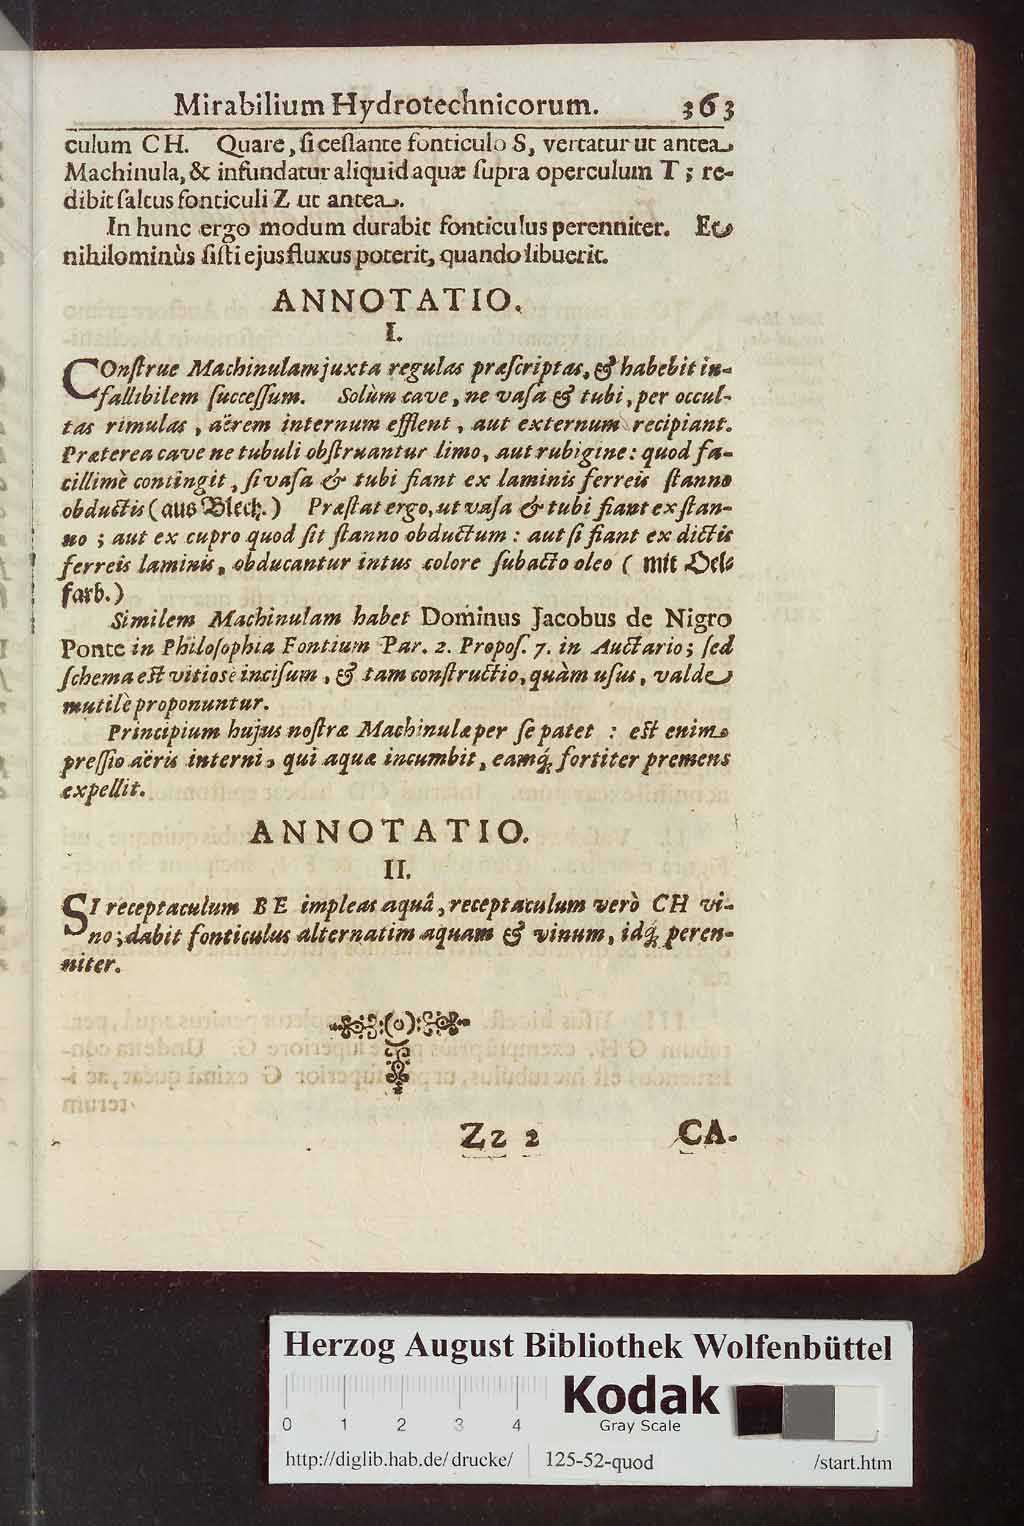 Mirabilium Hydrotechnicorum. 363
culum CH. Quare, si cessante fonticulo S, vertatur ut antea
Machinula, & infundatur aliquid aquæ supra operculum T; re-
dibit saltus fonticuli Z ut antea.
In hunc ergo modum durabit fonticulus perenniter. Et
nihilominùs sisti ejus fluxus poterit, quando libuerit.
ANNOTATIO.
I.
COnstrue Machinulam juxta regulas præscriptas, & habebit in-
fallibilem successum. Solùm cave, ne vasa & tubi, per occul-
tas rimulas, aërem internum efflent, aut externum recipiant.
Præterea cave ne tubuli obstruantur limo, aut rubigine: quod fa-
cillimè contingit, si vasa & tubi fiant ex laminis ferreis stanno
obductis (aus Blech.) Præstat ergo, ut vasa & tubi fiant ex stan-
no; aut ex cupro quod sit stanno obductum: aut si fiant ex dictis
ferreis laminis, obducantur intus colore subacto oleo (mit Oel-
farb.)
Similem Machinulam habet Dominus Jacobus de Nigro
Ponte in Philosophia Fontium Par. 2. Propos. 7. in Auctario; sed
schema est vitiosè incisum, & tam constructio, quàm usus, valde
mutilè proponuntur.
Principium hujus nostræ Machinulæ per se patet : est enim
pressio aëris interni, qui aquæ incumbit, eamq́; fortiter premens
expellit.
ANNOTATIO.
II.
SI receptaculum BE impleas aquâ, receptaculum verò CH vi-
no; dabit fonticulus alternatim aquam & vinum, idq́; peren-
niter.
Zz 2 CA.
Herzog August Bibliothek Wolfenbüttel
0 1 2 3 4 Kodak
Gray Scale
http://diglib.hab.de/drucke/ 125-52-quod /start.htm